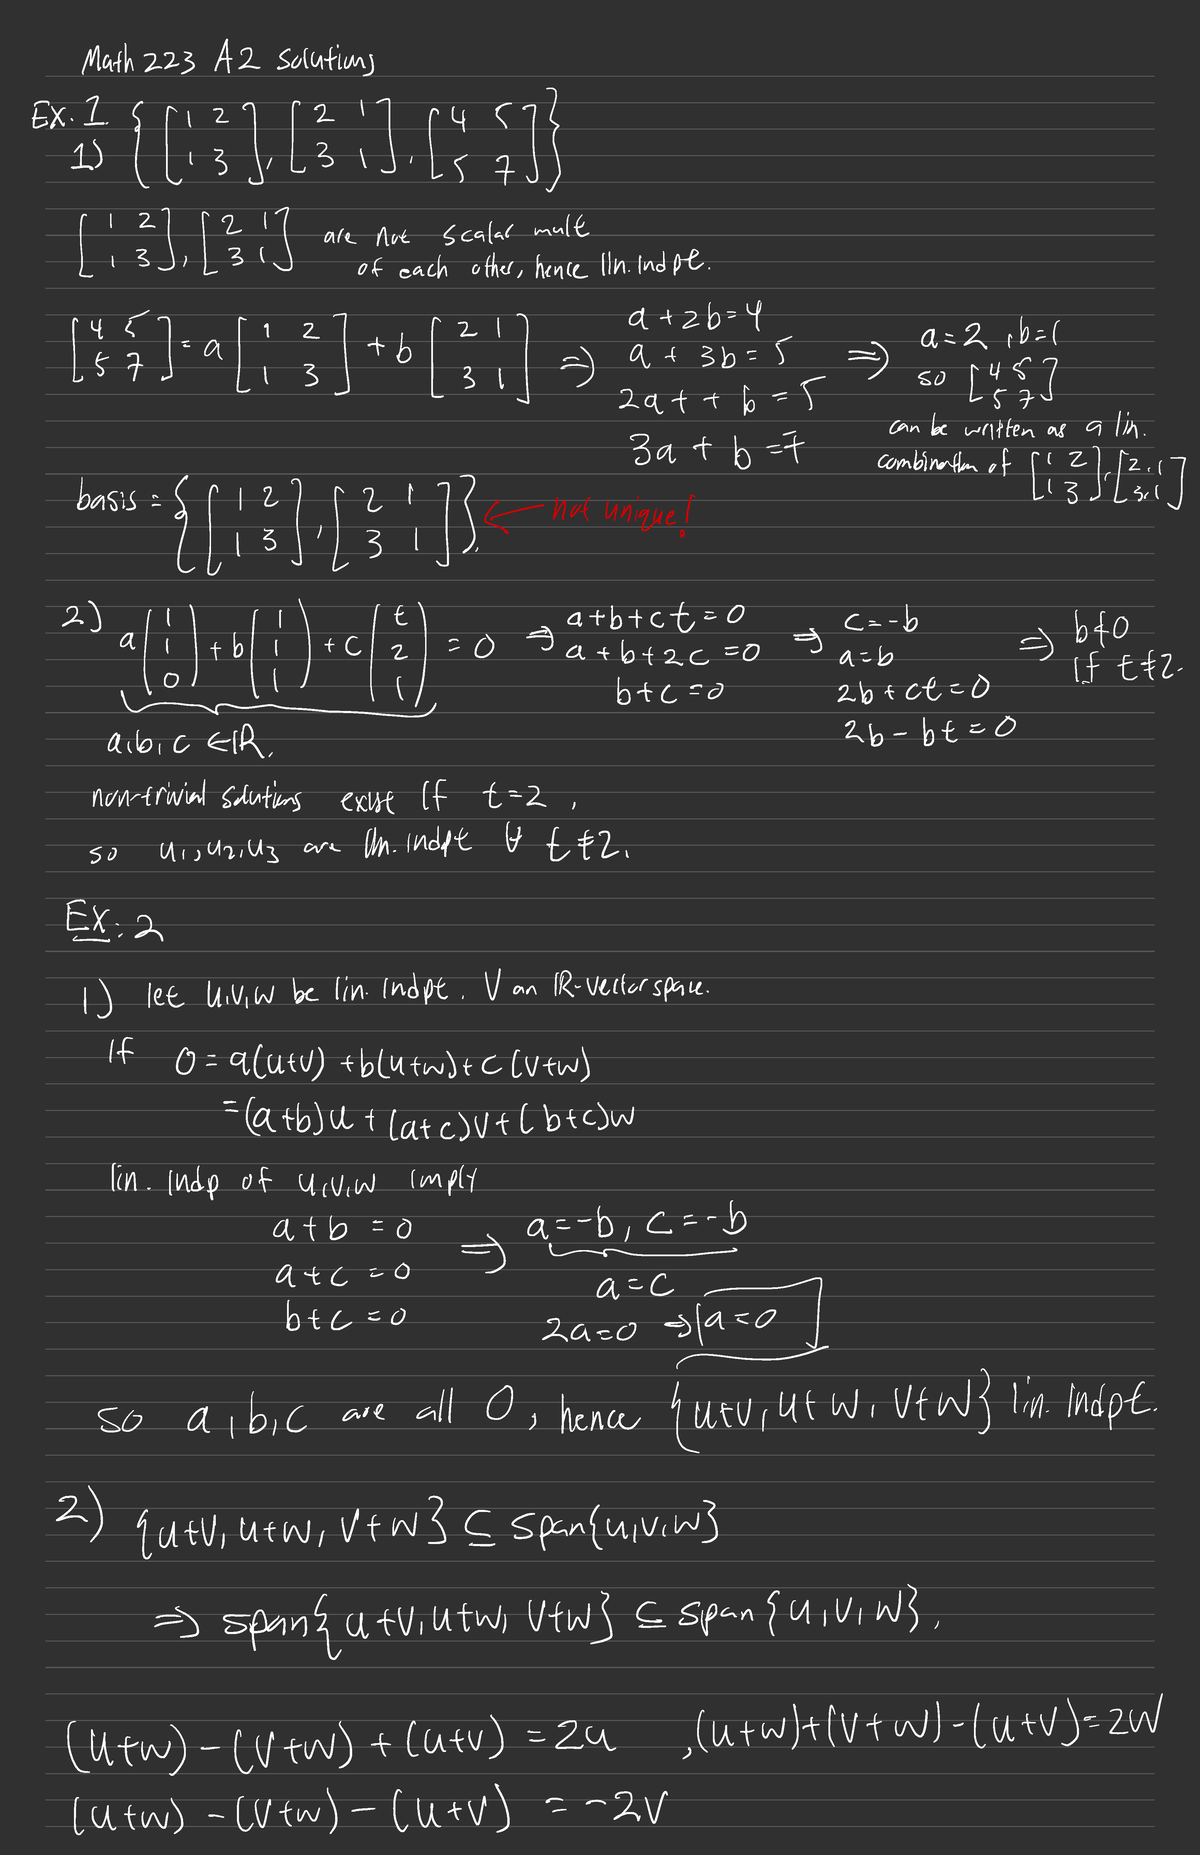 Math 223 A2 Solutions
Ex. 1
1) {[1 2; 1 3], [2 1; 3 1], [4 5; 5 7]}
[1 2; 1 3], [2 1; 3 1] are not scalar mult
of each other, hence lin. indpt.
[4 5; 5 7] = a[1 2; 1 3] + b[2 1; 3 1] ⇒ a + 2b = 4
a + 3b = 5
2a + + b = 5
3a + b = 7
⇒ a = 2, b = 1
so [4 5; 5 7]
can be written as a lin.
combination of [1 2; 1 3], [2 1; 3 1]
basis = {[1 2; 1 3], [2 1; 3 1]}. ← not unique!
2) a(1 1 0) + b(1 1 1) + c(t 2 1) = 0 ⇒ a+b+ct=0
a+b+2c=0
b+c=0
⇒ c=-b
a=b
2b+ct=0
2b-bt=0
⇒ b≠0
if t≠2.
a,b,c ∈ℝ.
non-trivial solutions exist if t=2,
so u1,u2,u3 are lin. indpt ∀ t≠2.
Ex. 2
1) let u,v,w be lin. indpt. V an ℝ-vector space.
If 0 = a(u+v) +b(u+w)+ c(v+w)
=(a+b)u + (a+c)v+(b+c)w
lin. indp of u,v,w imply
a+b = 0
a+c = 0
b+c = 0
⇒ a=-b, c=-b
a=c
2a=0 ⇒ a=0
so a,b,c are all 0, hence {u+v, u+w, v+w} lin. indpt.
2) {u+v, u+w, v+w} ⊆ span{u,v,w}
⇒ span{u+v,u+w, v+w} ⊆ span{u,v,w},
(u+w)-(v+w)+(u+v) = 2u ,(u+w)+(v+w)-(u+v)=2w
(u+w) -(v+w)-(u+v) = -2v